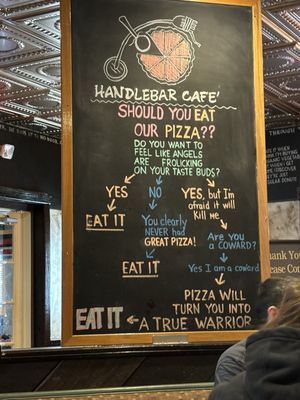 HANDLEBAR CAFE'
SHOULD YOU EAT
OUR PIZZA??
DO YOU WANT TO
FEEL LIKE ANGELS
ARE FROLICKING
ON YOUR TASTE BUDS?
YES
NO
YES, but I'm
afraid it will
Kill me
EAT IT
You clearly
NEVER had
GREAT PIZZA!
Are you
a COWARD?
EAT IT
Yes I am a coward
PIZZA WILL
TURN YOU INTO
A TRUE WARRIOR
EAT IT
Thank you
Please